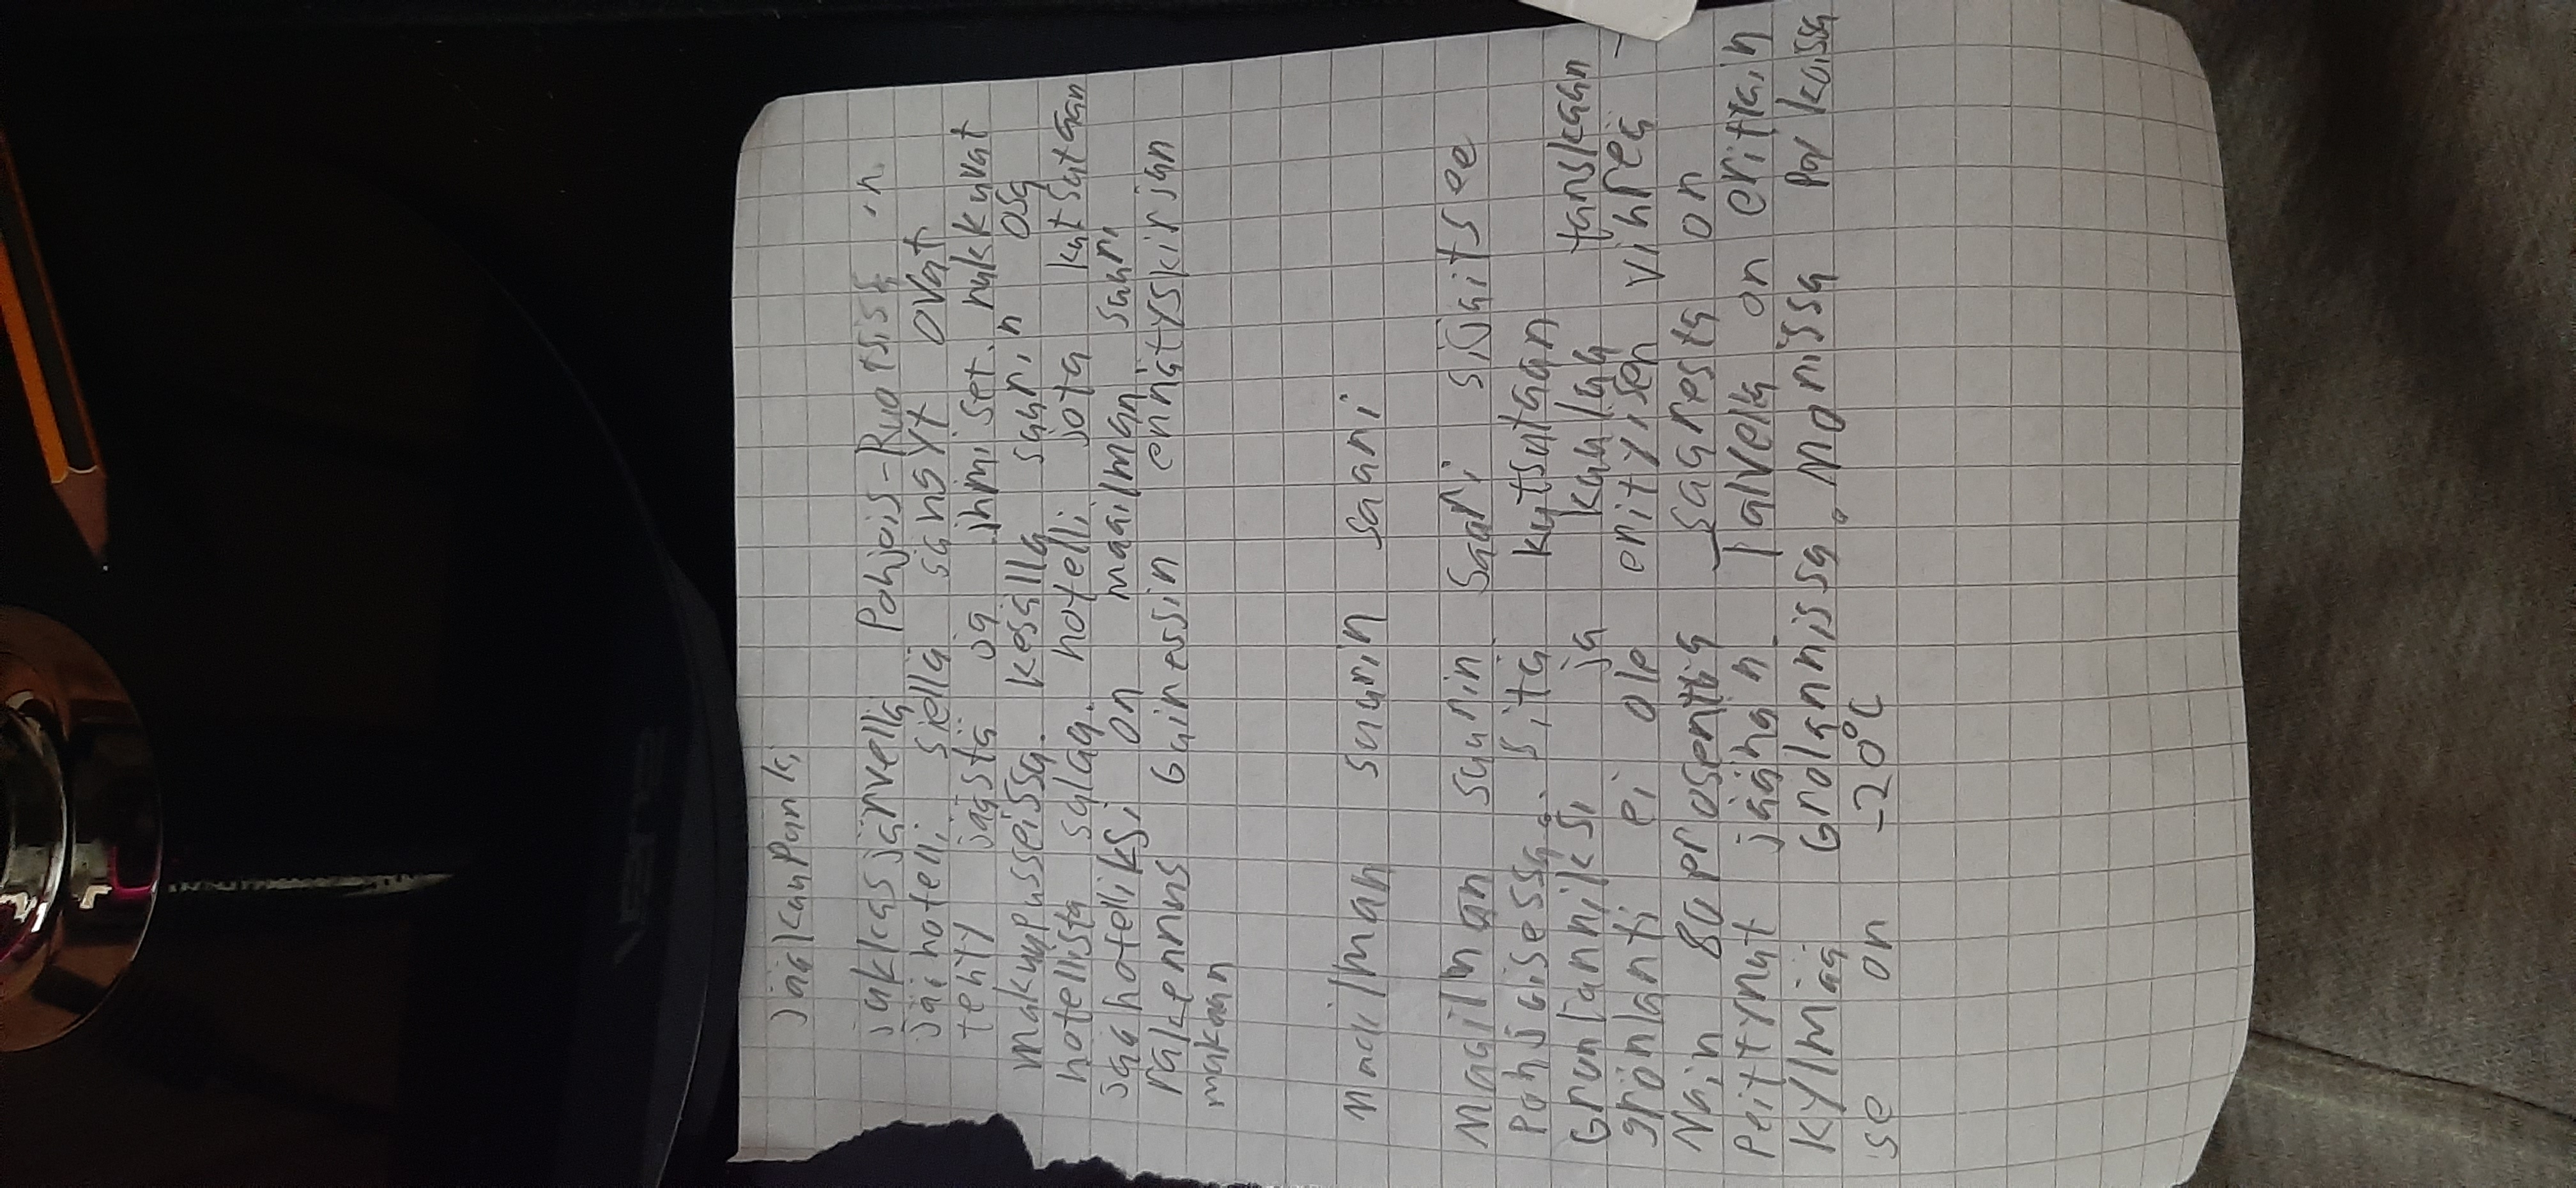 jääkaupanki
jukkasjärvellä Pohjois-Ruotsissa on
jäihotelli siellä sängyt ovat
tehty jäästä oja ihmiset nukkuvat
makuupusseissa. kesällä suurin osa
hotellista sulaa. hotelli jota kutsutaan
jäähotelliksi on maailman suuri
rakennus Gainessin ennätyskirjan
mukaan
Maailman suurin saari
Maailman suurin saari sijaitsee
Pohjoisessa. sitä kutsutaan
Grönlanniksi ja kuuluu tanskaan
grönlanti ei ole erityisen vihreä
Näin 80 prosenttia saaresta on
Peittynyt jäähän. Talvela on erittäin
kylmää Grolannissa. Monissa paikoissa
se on -20°C